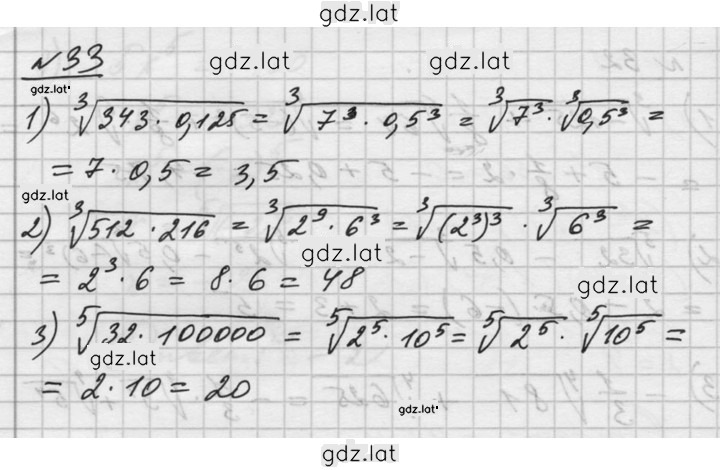 gdz.lat
№33
gdz.lat gdz.lat
gdz.lat
1) ∛(343 · 0,125) = ∛(7³ · 0,5³) = ∛(7³) · ∛(0,5³) =
= 7 · 0,5 = 3,5
gdz.lat
2) ∛(512 · 216) = ∛(2⁹ · 6³) = ∛((2³)³) · ∛(6³) =
gdz.lat
= 2³ · 6 = 8 · 6 = 48
gdz.lat
3) ⁵√(32 · 100000) = ⁵√(2⁵ · 10⁵) = ⁵√(2⁵) · ⁵√(10⁵) =
gdz.lat
= 2 · 10 = 20
gdz.lat
gdz.lat